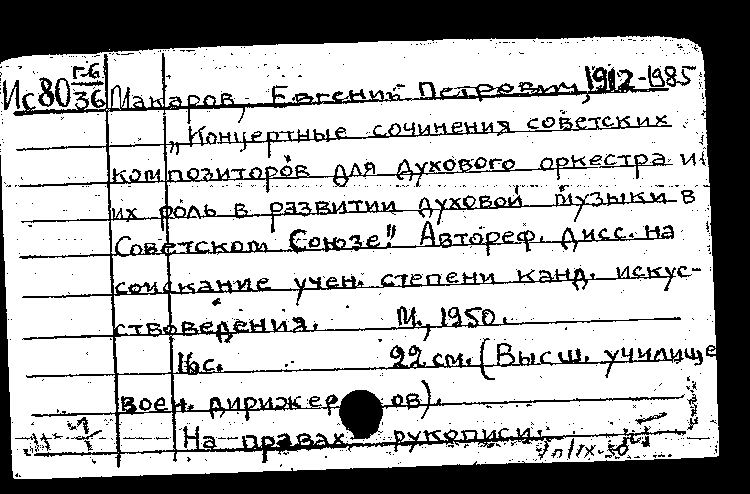 Ис80 Г-6/36 Макаров, Евгений Петрович, 1912-1985
„Концертные сочинения советских
композиторов для духового оркестра и
их роль в развитии духовой музыки в
Советском Союзе". Автореф. дисс. на
соискание учен. степени канд. искус-
ствоведения. М., 1950.
16с. 22 см. (Высш. училище
воен. дирижеров).
На правах рукописи.